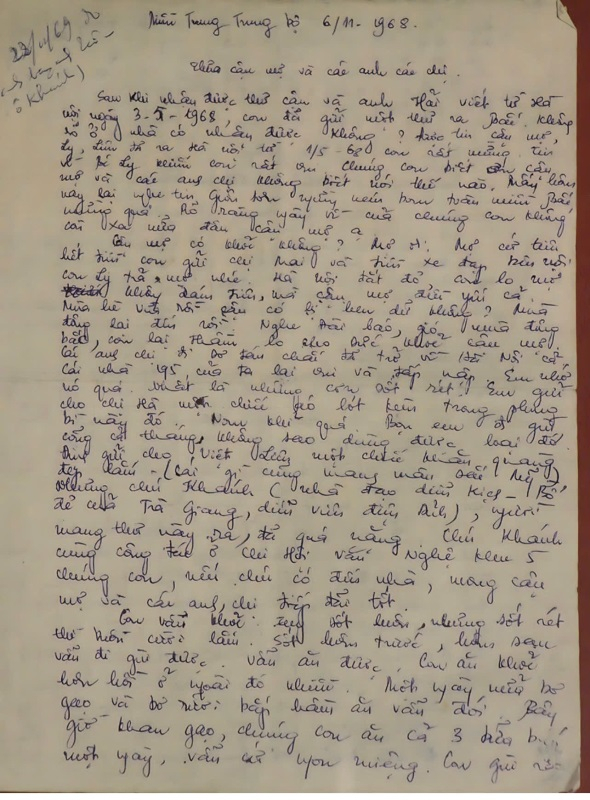 Miền Trung Trung bộ 6/11-1968.
22/11/69
Thưa cậu mợ và các anh các chị.
Sau khi nhận được thư cậu và anh Hải viết từ Hà
nội ngày 3-5-1968, con đã gửi một thư ra Bắc. Không
rõ ở nhà có nhận được không? Được tin cậu mợ,
Ly, đã ra Hà nội từ 1/5-68 con rất mừng. Tin
về bé Ly khiến con rất chúng con biết ơn cậu
mợ và các anh chị không biết nói thế nào. Mấy hôm
nay lại nghe tin ném bom toàn miền Bắc
mừng quá. Rõ ràng ngày về của chúng con không
còn xa nữa đâu cậu mợ ạ.
Cậu mợ có khoẻ không? Mợ ơi. Mợ cứ tiêu
hết tiền con gửi chị Mai và tiền xe đạp bên nội
con Ly trả mợ nhé. Hà nội đắt đỏ con lo mợ
không dám tiêu, mà cậu mợ đều yếu cả.
Mùa hè vừa rồi cậu có bị hen dữ không? Mùa
đông lại đến rồi. Nghe đài báo, gió mùa đông
bắc, con lại lo cho sức khoẻ cậu mợ.
Các anh chị đi sơ tán chắc đã trở về Hà Nội cả.
Cái nhà 195 của ta lại vui và tấp nập. Em nhớ
nó quá. Nhất là những cơn sốt rét. Em gửi
cho chị Hà một chiếc áo lót kèm trong phong
bì này đó. Nom khỉ quá. Bọn em ở gửi
công cả tháng, không sao dùng được loại đó
gửi cho Việt Liên một chiếc khăn quàng
đẹp lắm - (Cái gì cũng mang màu sắc Mỹ)
Nhưng chú Khánh (nhà đạo diễn kịch - Bố
đẻ của Trà Giang, diễn viên điện ảnh), người
mang thư này ra, đã quá nặng. Chú Khánh
cùng công tác ở Chi Hội Văn Nghệ khu 5
chúng con, nếu chú có đến nhà, mong cậu
mợ và các anh, chị tiếp đãi tốt.
Con vẫn khoẻ. sốt luôn, nhưng sốt rét
thì buồn cười lắm. Sốt hôm trước, hôm sau
vẫn đi gùi được. Vẫn ăn được. Con ăn khoẻ
hơn hồi ở ngoài đó nhiều. Một ngày nửa bơ
gạo và bơ rưỡi bắp hầm ăn vẫn đói. Bây
giờ khan gạo, chúng con ăn cả 3 bữa
một ngày, vẫn cứ ngon miệng. Con gửi